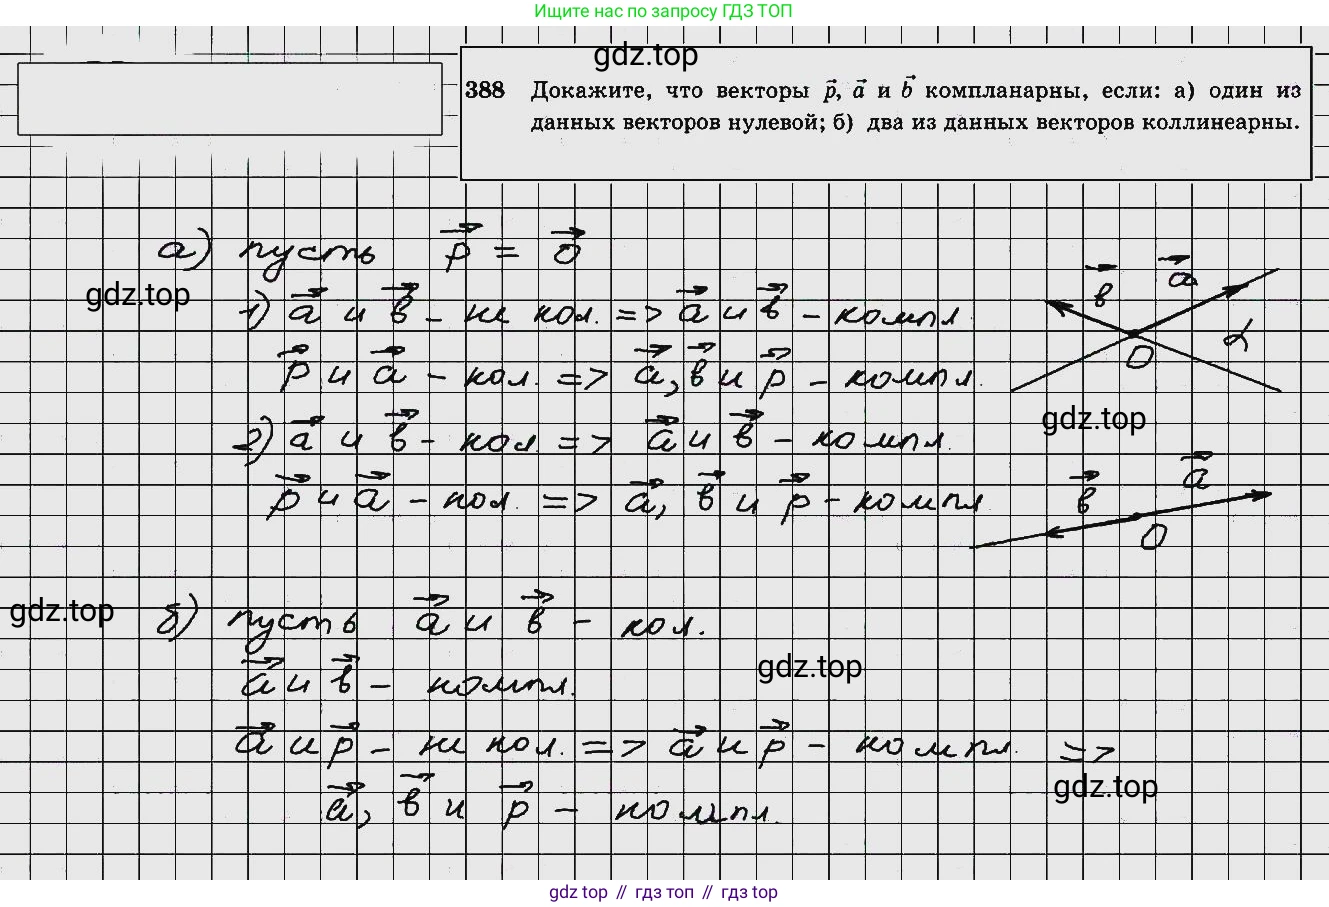 Ищите нас по запросу ГДЗ ТОП
gdz.top
388 Докажите, что векторы p⃗, a⃗ и b⃗ компланарны, если: а) один из
данных векторов нулевой; б) два из данных векторов коллинеарны.
а) пусть p⃗ = 0⃗
gdz.top
1) a⃗ и b⃗ – не кол. => a⃗ и b⃗ – компл
b⃗ a⃗
α
O
p⃗ и a⃗ – кол. => a⃗, b⃗ и p⃗ – компл.
gdz.top
2) a⃗ и b⃗ – кол. => a⃗ и b⃗ – компл.
p⃗ и a⃗ – кол. => a⃗, b⃗ и p⃗ – компл
b⃗ a⃗
O
gdz.top
б) пусть a⃗ и b⃗ – кол.
gdz.top
a⃗ и b⃗ – компл.
a⃗ и p⃗ – не кол. => a⃗ и p⃗ – компл. =>
gdz.top
a⃗, b⃗ и p⃗ – компл.
gdz top // гдз топ // gdz top